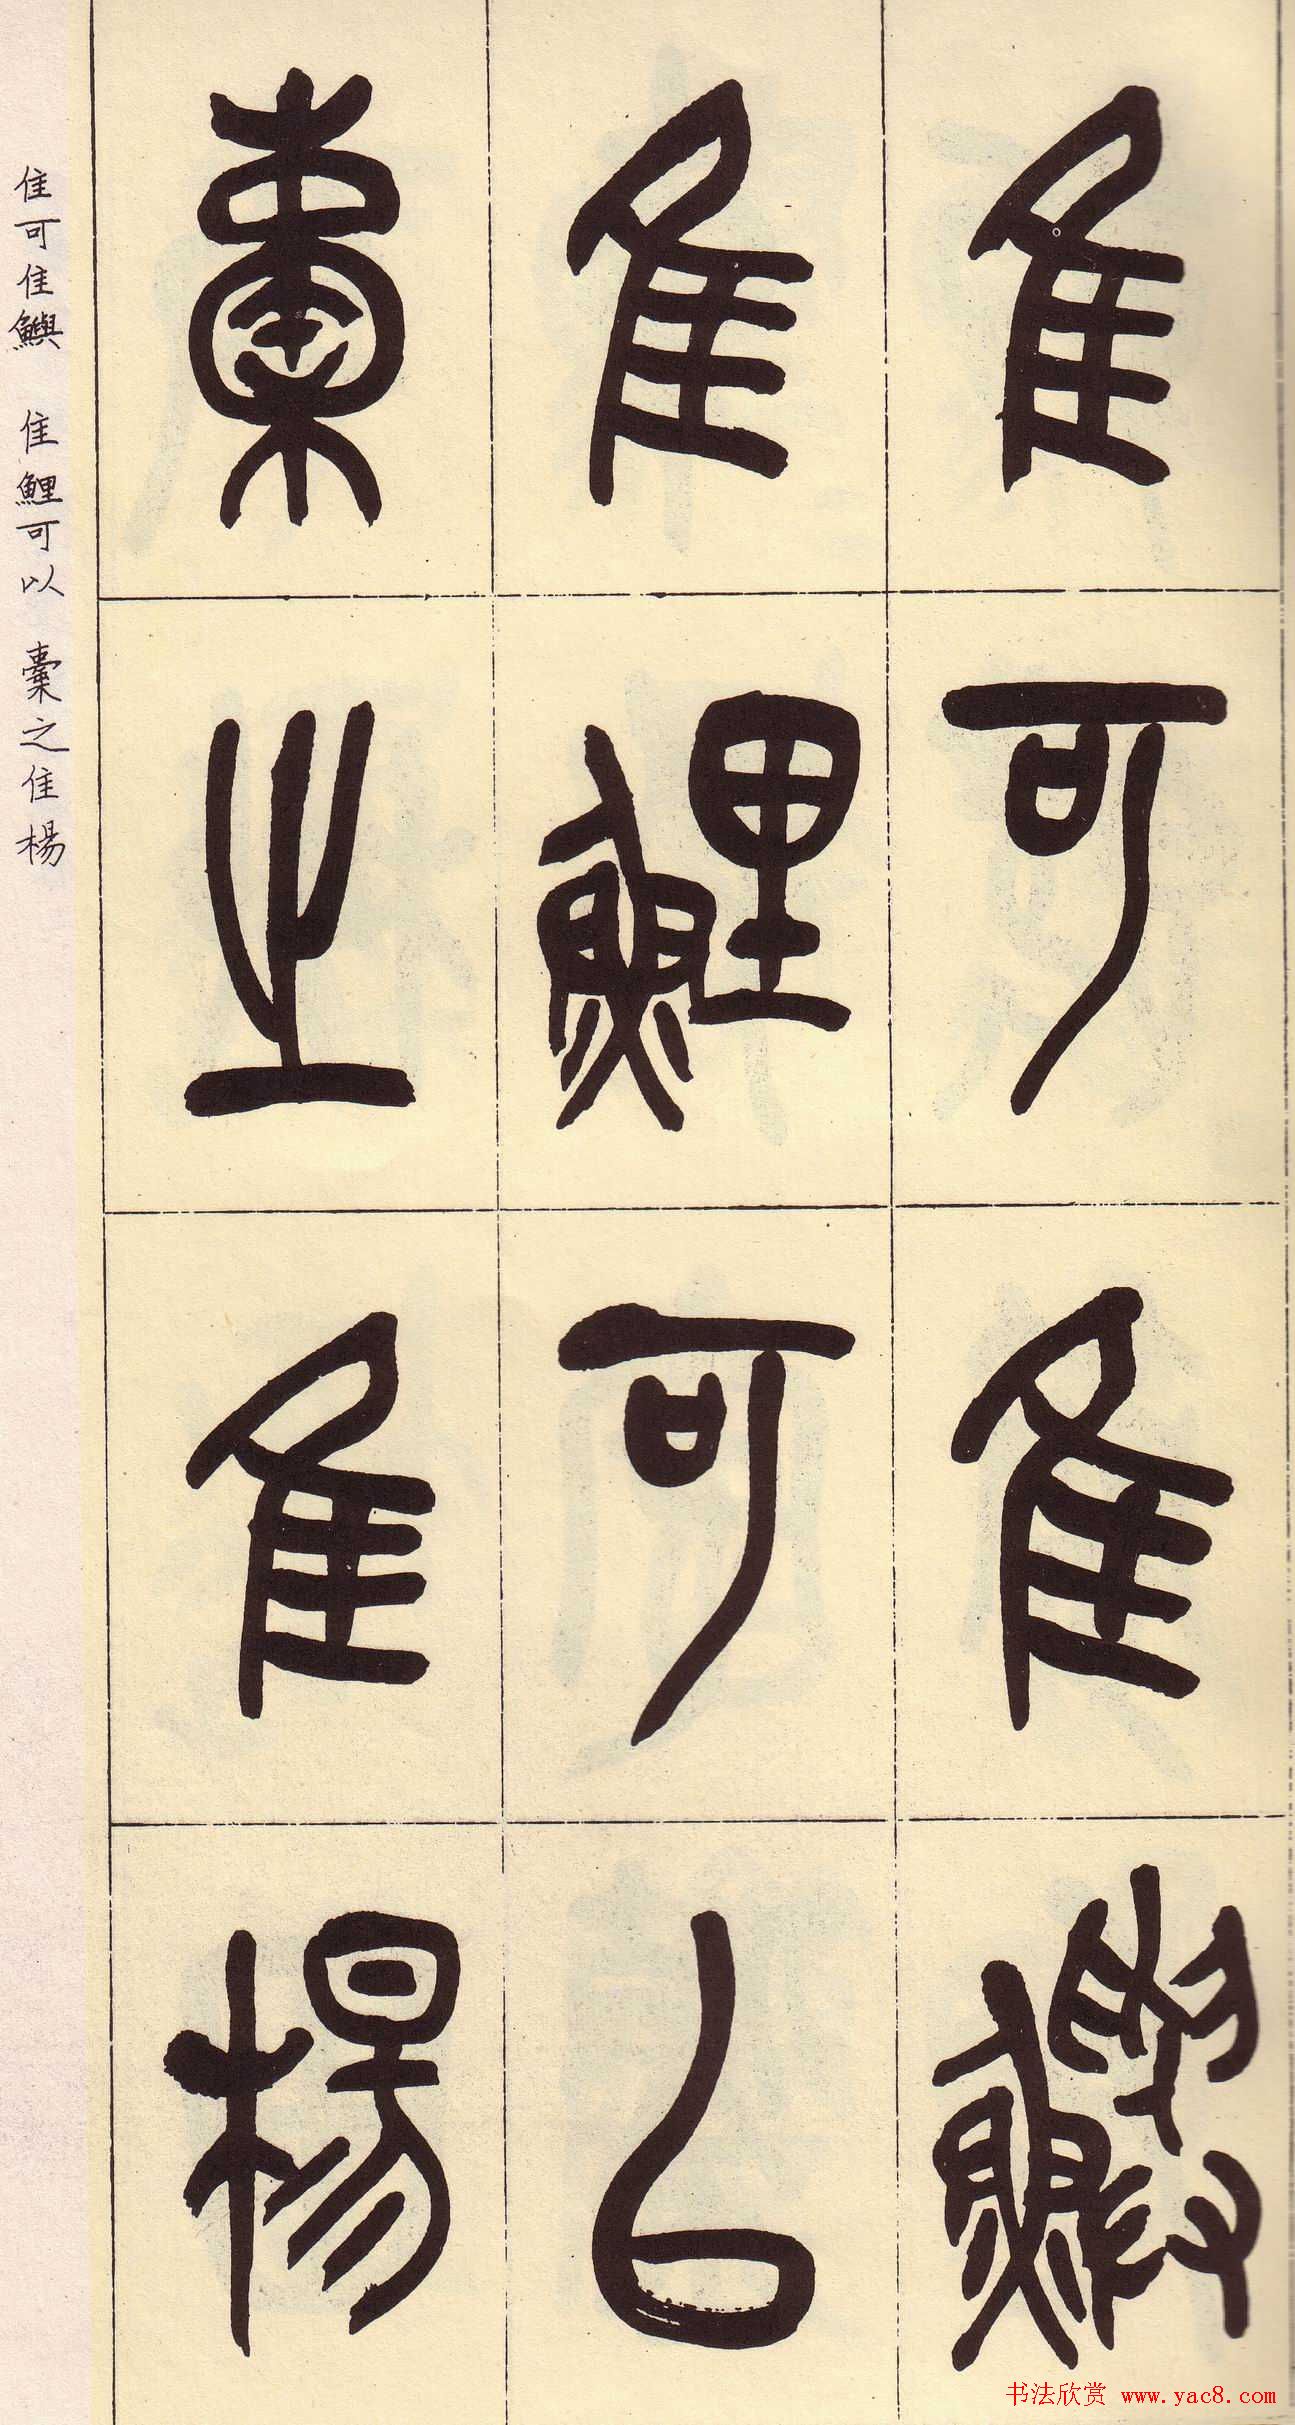 隹可隹鱮
隹鯉可㠯
橐之隹楊
隹可隹鱮 隹鯉可以 橐之隹楊
书法欣赏 www.yac8.com